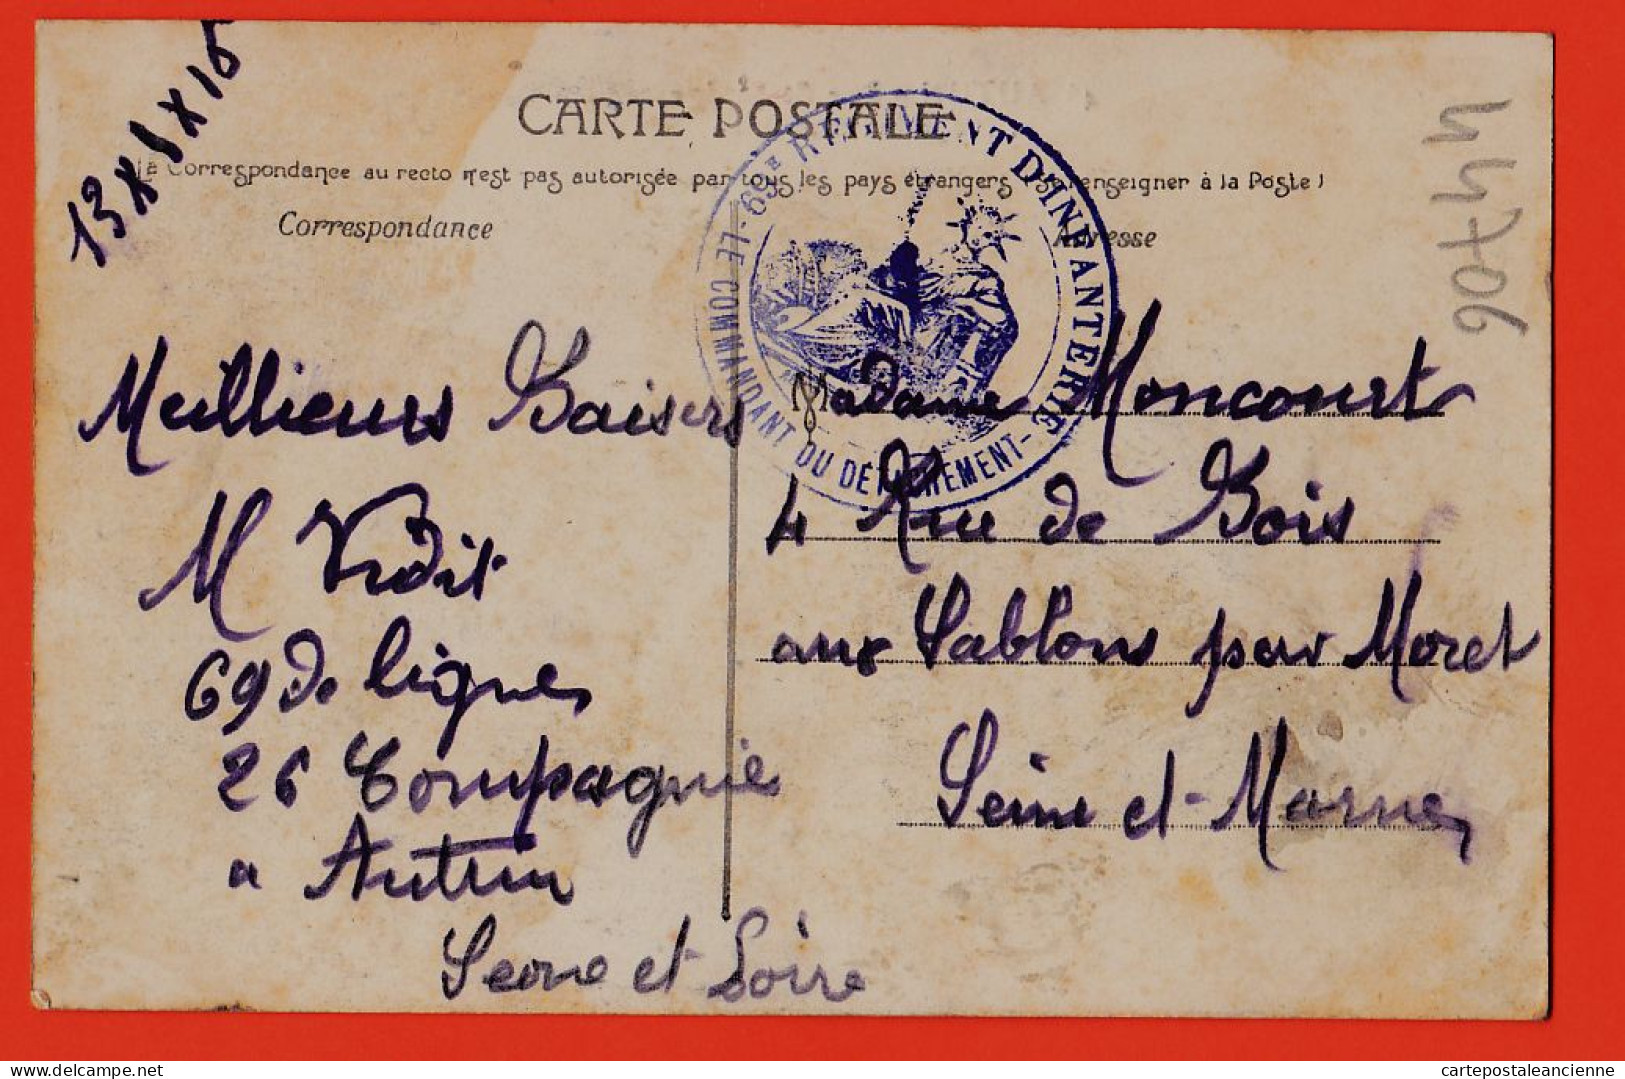 13 X 8 X 15
CARTE POSTALE
La Correspondance au recto n'est pas autorisée par tous les pays étrangers (Se renseigner à la Poste)
Correspondance
Adresse
69E RÉGIMENT D'INFANTERIE
- LE COMMANDANT DU DÉTACHEMENT -
90744
Meillieurs Baisers
M Vidit
69 de ligne
26 Compagnie
a Autun
Seone et Loire
Madame Moncourt
4 Rue de Bois
aux Sablons par Moret
Seine et-Marne
www.delcampe.net
cartepostaleancienne